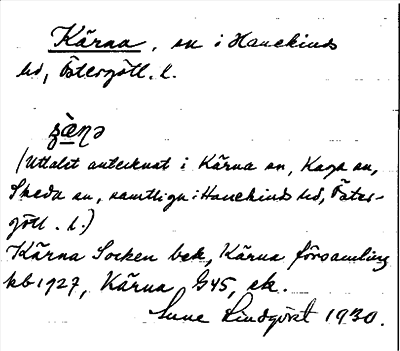 Kärna, sn i Hanekinds
hd, Östergötl. l.
(Uttalet antecknat i Kärna sn, Kaga sn,
Skeda sn, samtliga i Hanekinds hd, Öster-
götl. l.)
Kärna Socken bek, Kärna församling
kb 1927, Kärna G45, ek.
Sune Lindqvist 1930.